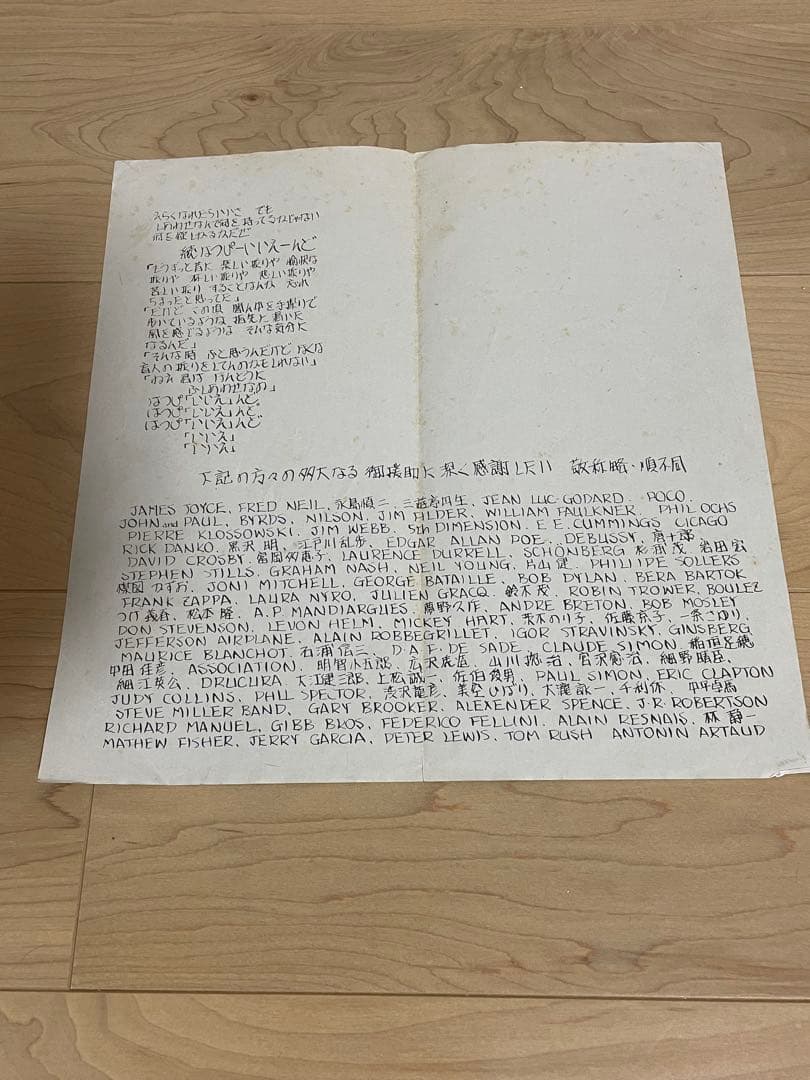 えらくなれたらいいさ でも
しあわせなんて何を持ってるかじゃない
何を欲しがるかだぜ
続はっぴーいいえーんど
「どうせっと昔に 楽しい振りや 愉快な
振りや 淋しい振りや 悲しい振りや
苦しい振り することなんか
ちょっと
「だけど この頃 で
歩いているような 指先に
風を感じるような そんな気分に
なるんだ」
「そんな時 ふと思うんだけど ぼくは
盲人の振りをしてんのかもしれない」
「ねえ 君は ほんとうに
ふしあわせなの」
はっぴ「いいえ」んど。
はっぴ「いいえ」んど。
はっぴ「いいえ」んど
「いいえ」
「いいえ」
下記の方々の多大なる御援助に深く感謝したい 敬称略・順不同
JAMES JOYCE, FRED NEIL, 永島慎二, 三遊亭円生, JEAN LUC-GODARD, POCO,
JOHN and PAUL, BYRDS, NILSON, JIM FIELDER, WILLIAM FAULKNER, PHIL OCHS
PIERRE KLOSSOWSKI, JIM WEBB, 5th DIMENSION, E.E. CUMMINGS, CICAGO
RICK DANKO, 黒沢明, 江戸川乱歩, EDGAR ALLAN POE, DEBUSSY, 唐十郎
DAVID CROSBY, 富岡多恵子, LAURENCE DURRELL, SCHÖNBERG, 杉浦茂, 岩田宏
STEPHEN STILLS, GRAHAM NASH, NEIL YOUNG, 片山健, PHILIPE SOLLERS
楳図かずお, JONI MITCHELL, GEORGE BATAILLE, BOB DYLAN, BERA BARTOK
FRANK ZAPPA, LAURA NYRO, JULIEN GRACQ, 鈴木茂, ROBIN TROWER, BOULEZ
つげ義春, 松本隆, A.P. MANDIARGUES, 夢野久作, ANDRE BRETON, BOB MOSLEY
DON STEVENSON, LEVON HELM, MICKEY HART, 茨木のり子, 佐藤京子, 一条さゆり,
JEFFERSON AIRPLANE, ALAIN ROBBEGRILLET, IGOR STRAVINSKY, GINSBERG
MAURICE BLANCHOT, 石浦信三, D.A.F. DE SADE, CLAUDE SIMON, 稲垣足穂
中田佳彦, ASSOCIATION, 明智小五郎, 広沢虎造, 山川惣治, 宮沢賢治, 細野晴臣,
細江英公, DRUCURA, 大江健三郎, 上村誠二, 佐伯俊男, PAUL SIMON, ERIC CLAPTON
JUDY COLLINS, PHIL SPECTOR, 渋沢龍彦, 美空ひばり, 大滝詠一, 千利休, 中平卓馬
STEVE MILLER BAND, GARY BROOKER, ALEXENDER SPENCE, J.R. ROBERTSON
RICHARD MANUEL, GIBB BROS, FEDERICO FELLINI, ALAIN RESNAIS, 林静一
MATHEW FISHER, JERRY GARCIA, PETER LEWIS, TOM RUSH ANTONIN ARTAUD